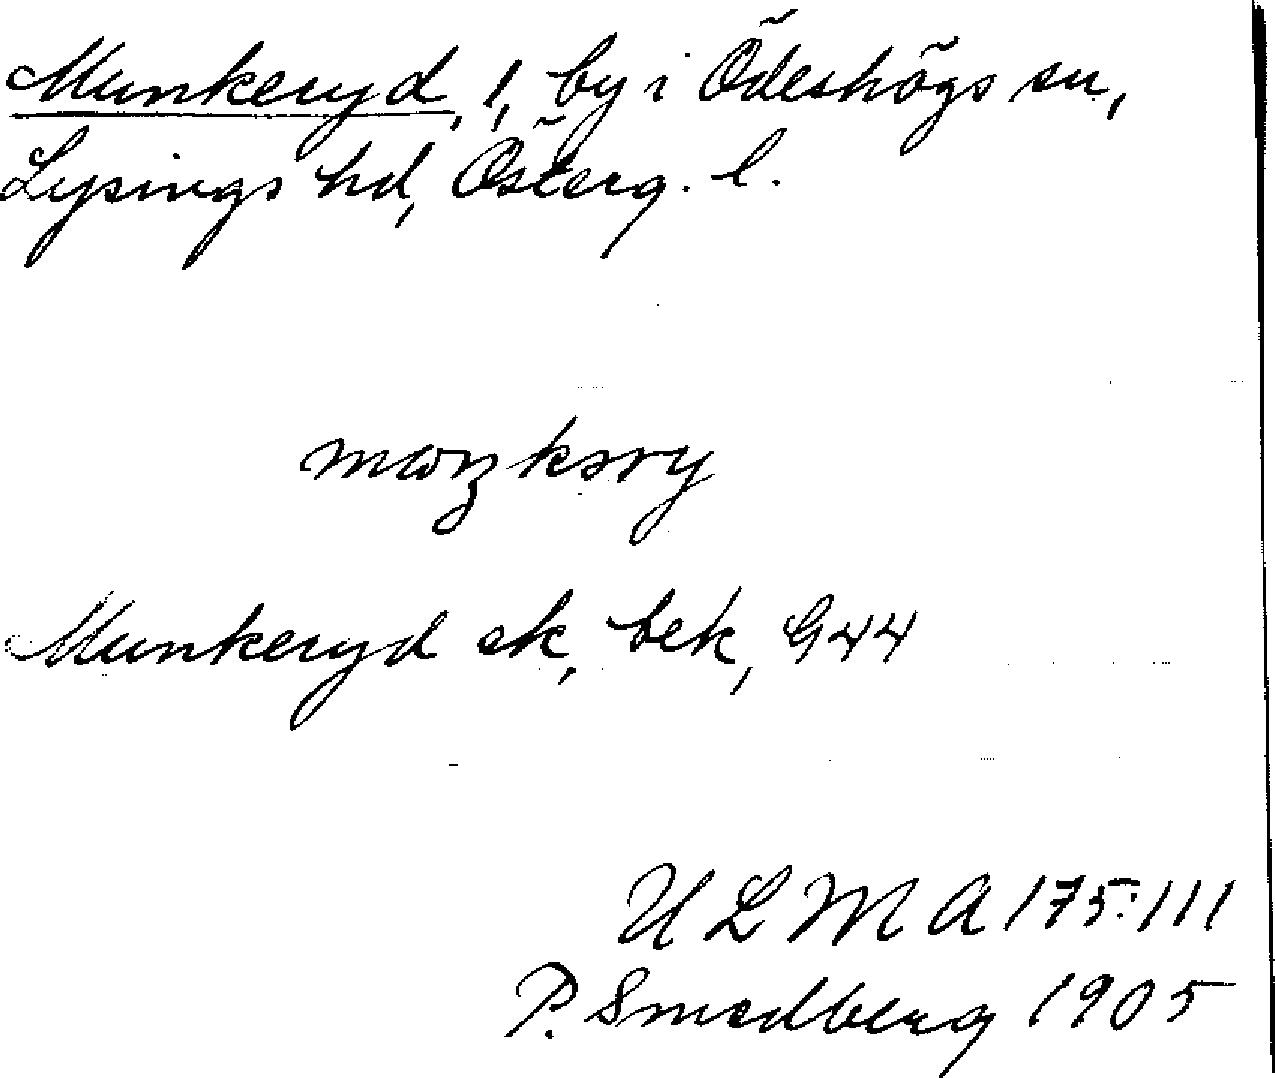 Munkeryd, 1, by i Ödeshögs sn,
Lysings hd, Österg. l.
Munkeryd ek, bek, G44
ULMA 175:111
P. Smedberg 1905